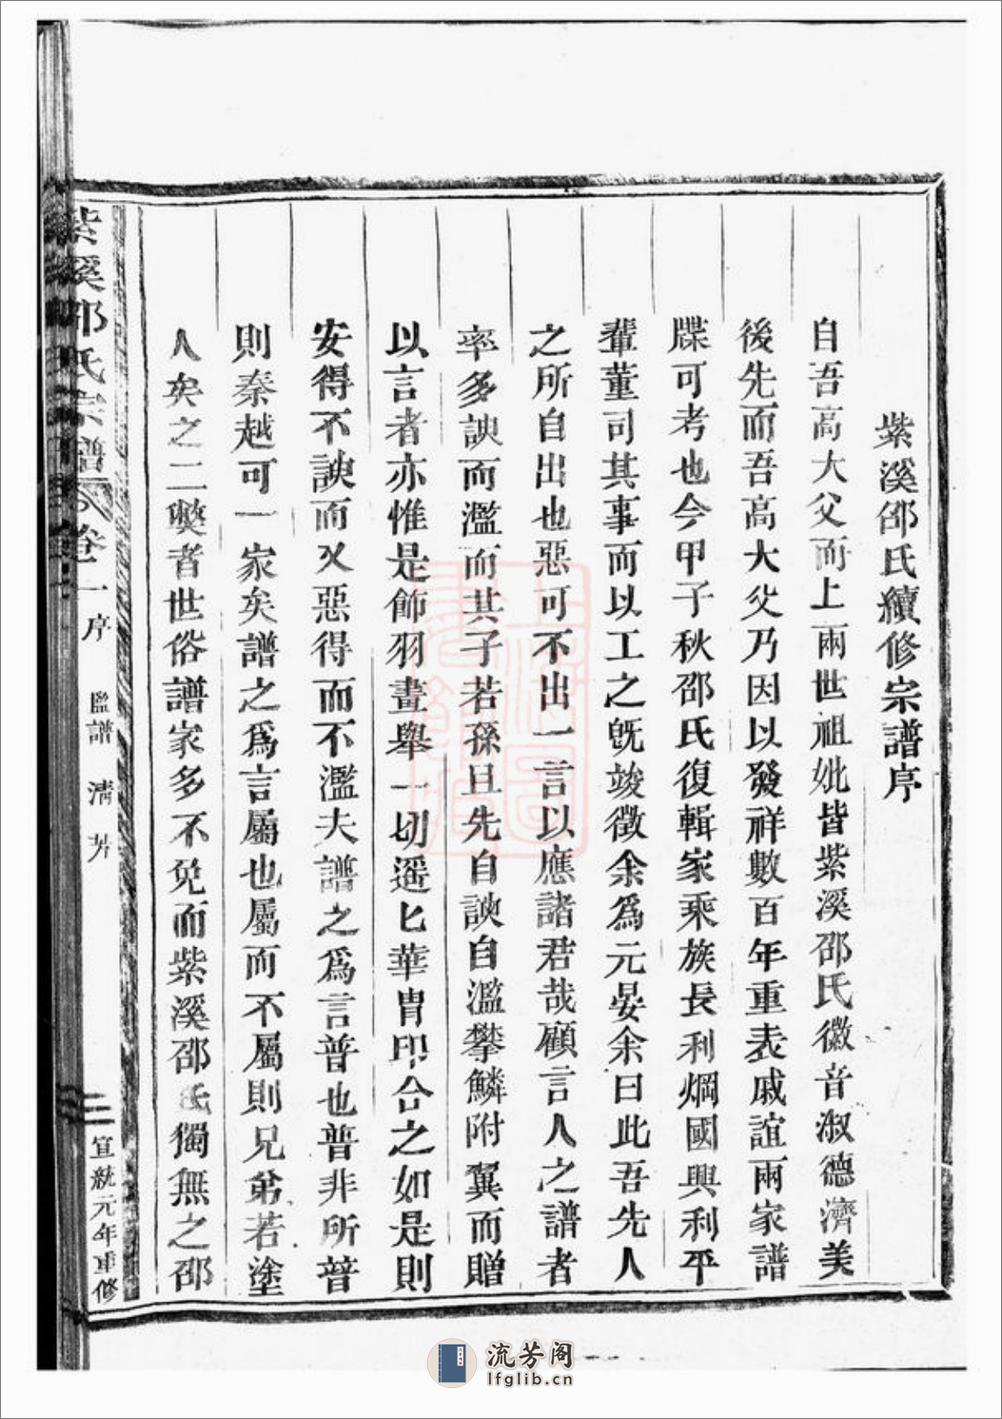 紫溪邵氏續修宗譜序
自吾高大父而上兩世祖妣皆紫溪邵氏徽音淑德濟美
後先而吾高大父乃因以發祥數百年重表戚誼兩家譜
牒可考也今甲子秋邵氏復輯家乘族長利烱國興利平
輩董司其事而以工之旣竣徵余爲元晏余曰此吾先人
之所自出也惡可不出一言以應諸君哉顧言人之譜者
率多諛而濫而其子若孫且先自諛自濫攀鱗附翼而贈
以言者亦惟是飾羽畫舉一切遥匕華胄印合之如是則
安得不諛而又惡得而不濫夫譜之爲言普也普非所普
則秦越可一家矣譜之爲言屬也屬而不屬則兄弟若塗
人矣之二弊者世俗譜家多不免而紫溪邵氏獨無之邵
紫溪邵氏宗譜 卷一 序 監譜 清芳 三 宣統元年重修
上海圖書館藏
流芳阁
lfglib.cn